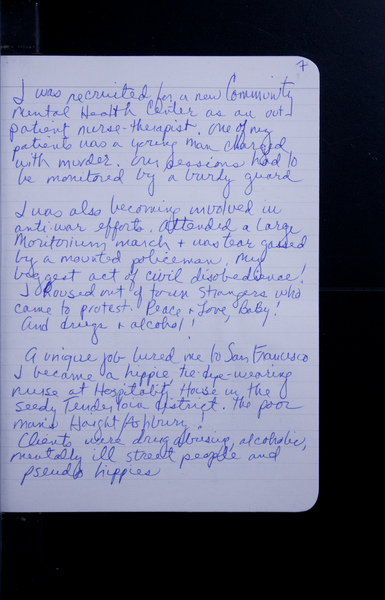 7
I was recruited for a new Community
Mental Health Center as an out-
patient nurse-therapist. One of my
patients was a young man charged
with murder. Our sessions had to
be monitored by a burdy guard
I was also becoming involved in
anti-war efforts. Attended a large
Moritorium march + was tear gassed
by a mounted policeman. My
biggest act of civil disobedience!
I housed out of town strangers who
came to protest. Peace + Love, Baby!
And drugs + alcohol!
A unique job lured me to San Francisco
I became a hippie, tie-dye-wearing
nurse at Hospitality House in the
seedy Tenderloin district. The poor
man's Haight/Ashbury!
Clients were drug abusing, alcoholic,
mentally ill street people and
pseudo hippies